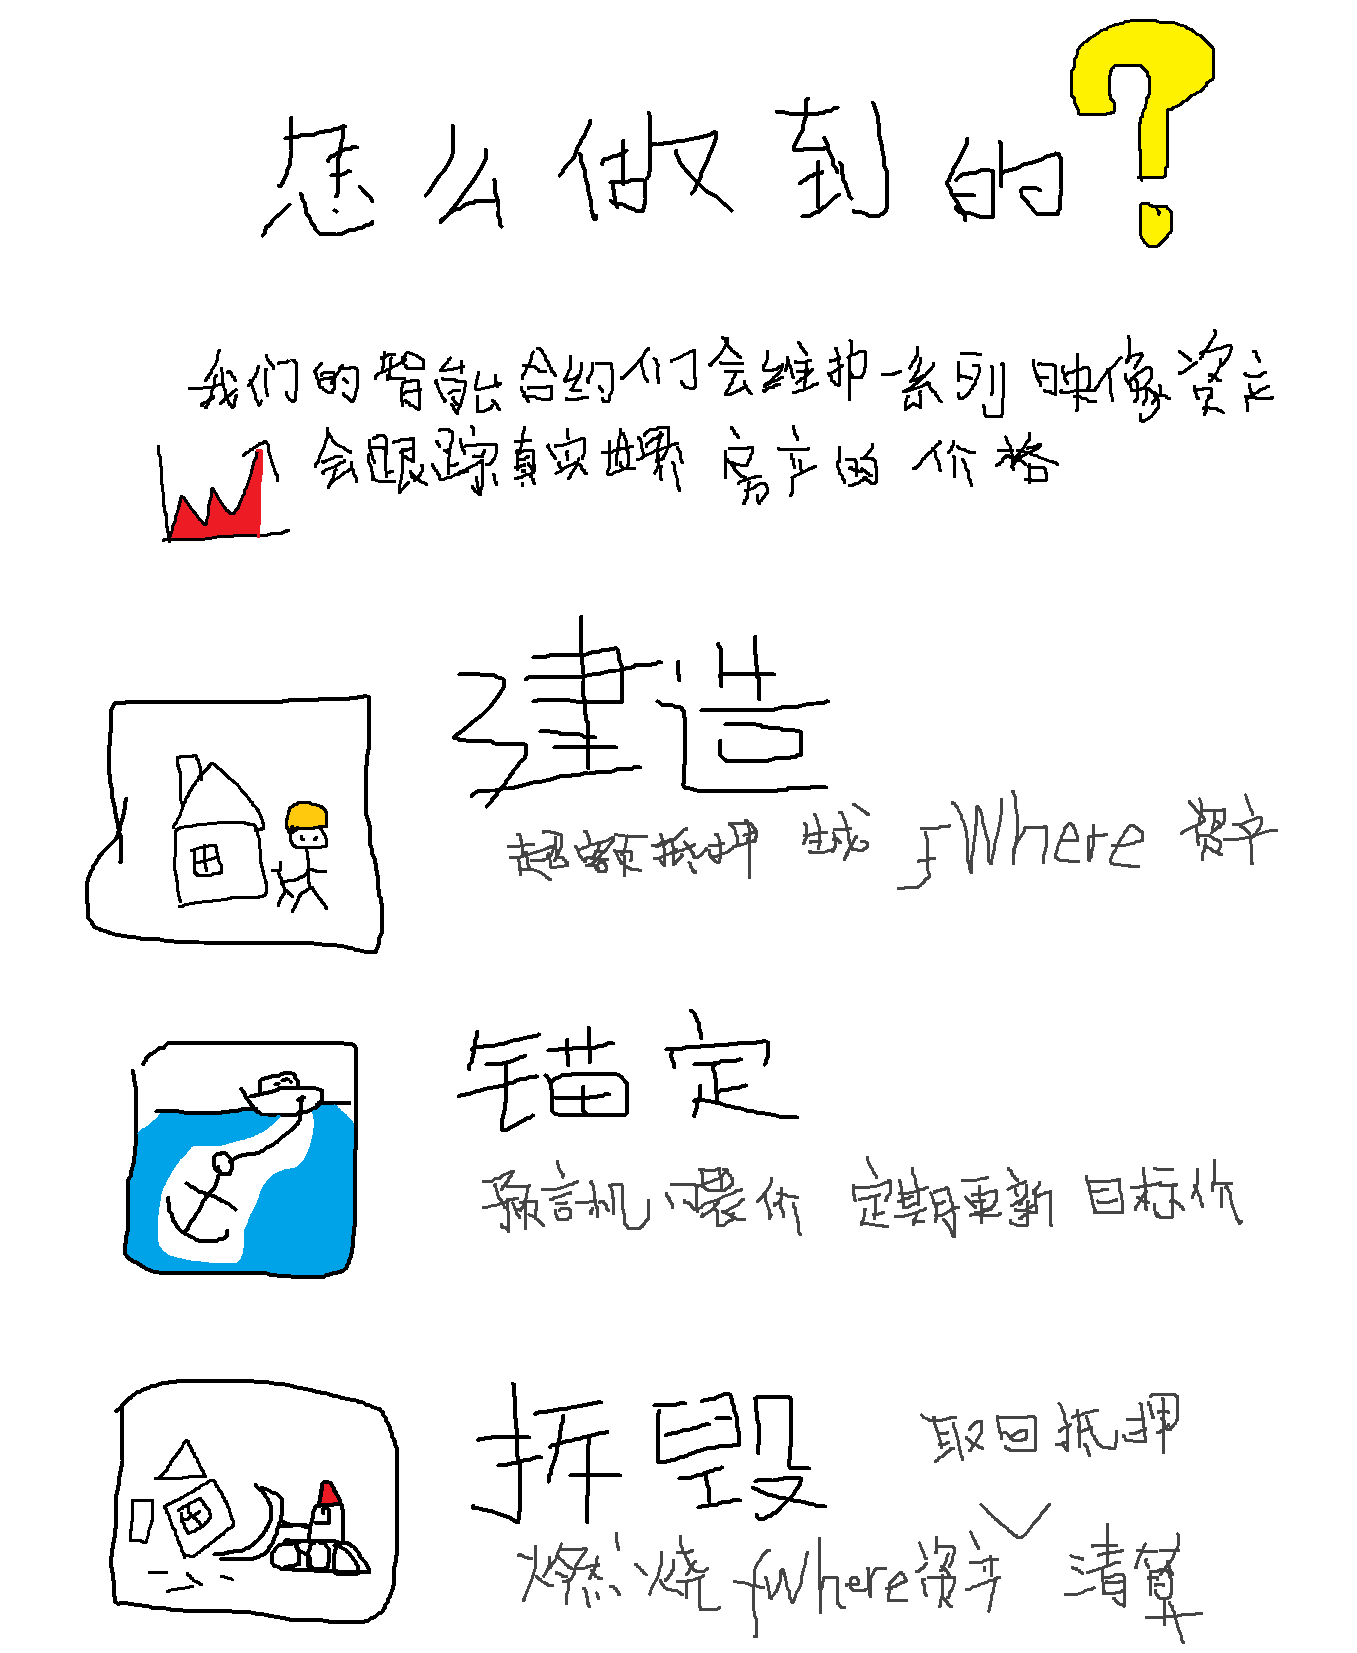 怎么做到的?
我们的智能合约们会维护一系列映像资产
会跟踪真实世界房产的价格
建造
超额抵押 生成 fWhere 资产
锚定
预言机喂价 定期更新 目标价
拆毁
取回抵押
燃烧 fWhere资产 清算